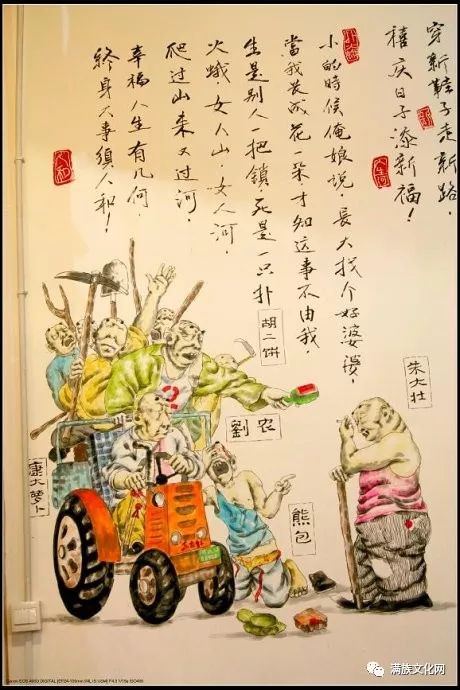 穿新鞋子走新路，
禧庆日子添新福！
小的時候俺娘说，長大找个好婆婆，
當我长成花一朵，才知这事不由我，
生是别人一把鎖，死是一只扑
火蛾，女人山，女人河，
爬过山来又过河，
幸福人生有几何，
終身大事須人和！
人和
胡二饼
朱大壮
劉农
康大萝卜
熊包
满族文化网